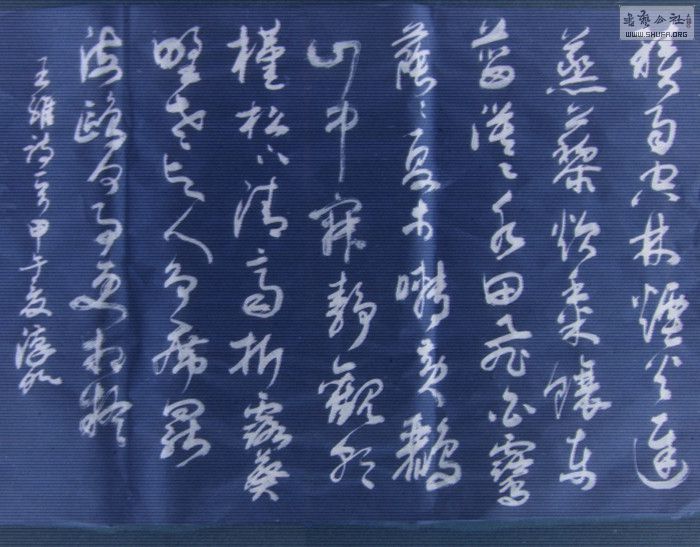 積雨空林煙火遲
蒸藜炊黍饟東
菑漠漠水田飛白鷺
蔭蔭夏木囀黃鸝
山中寂靜觀朝
槿松下清齋折露葵
野老與人爭席罷
海鷗何事更相疑
王維詩一首甲午夏
書藝公社
WWW.SHUFA.ORG